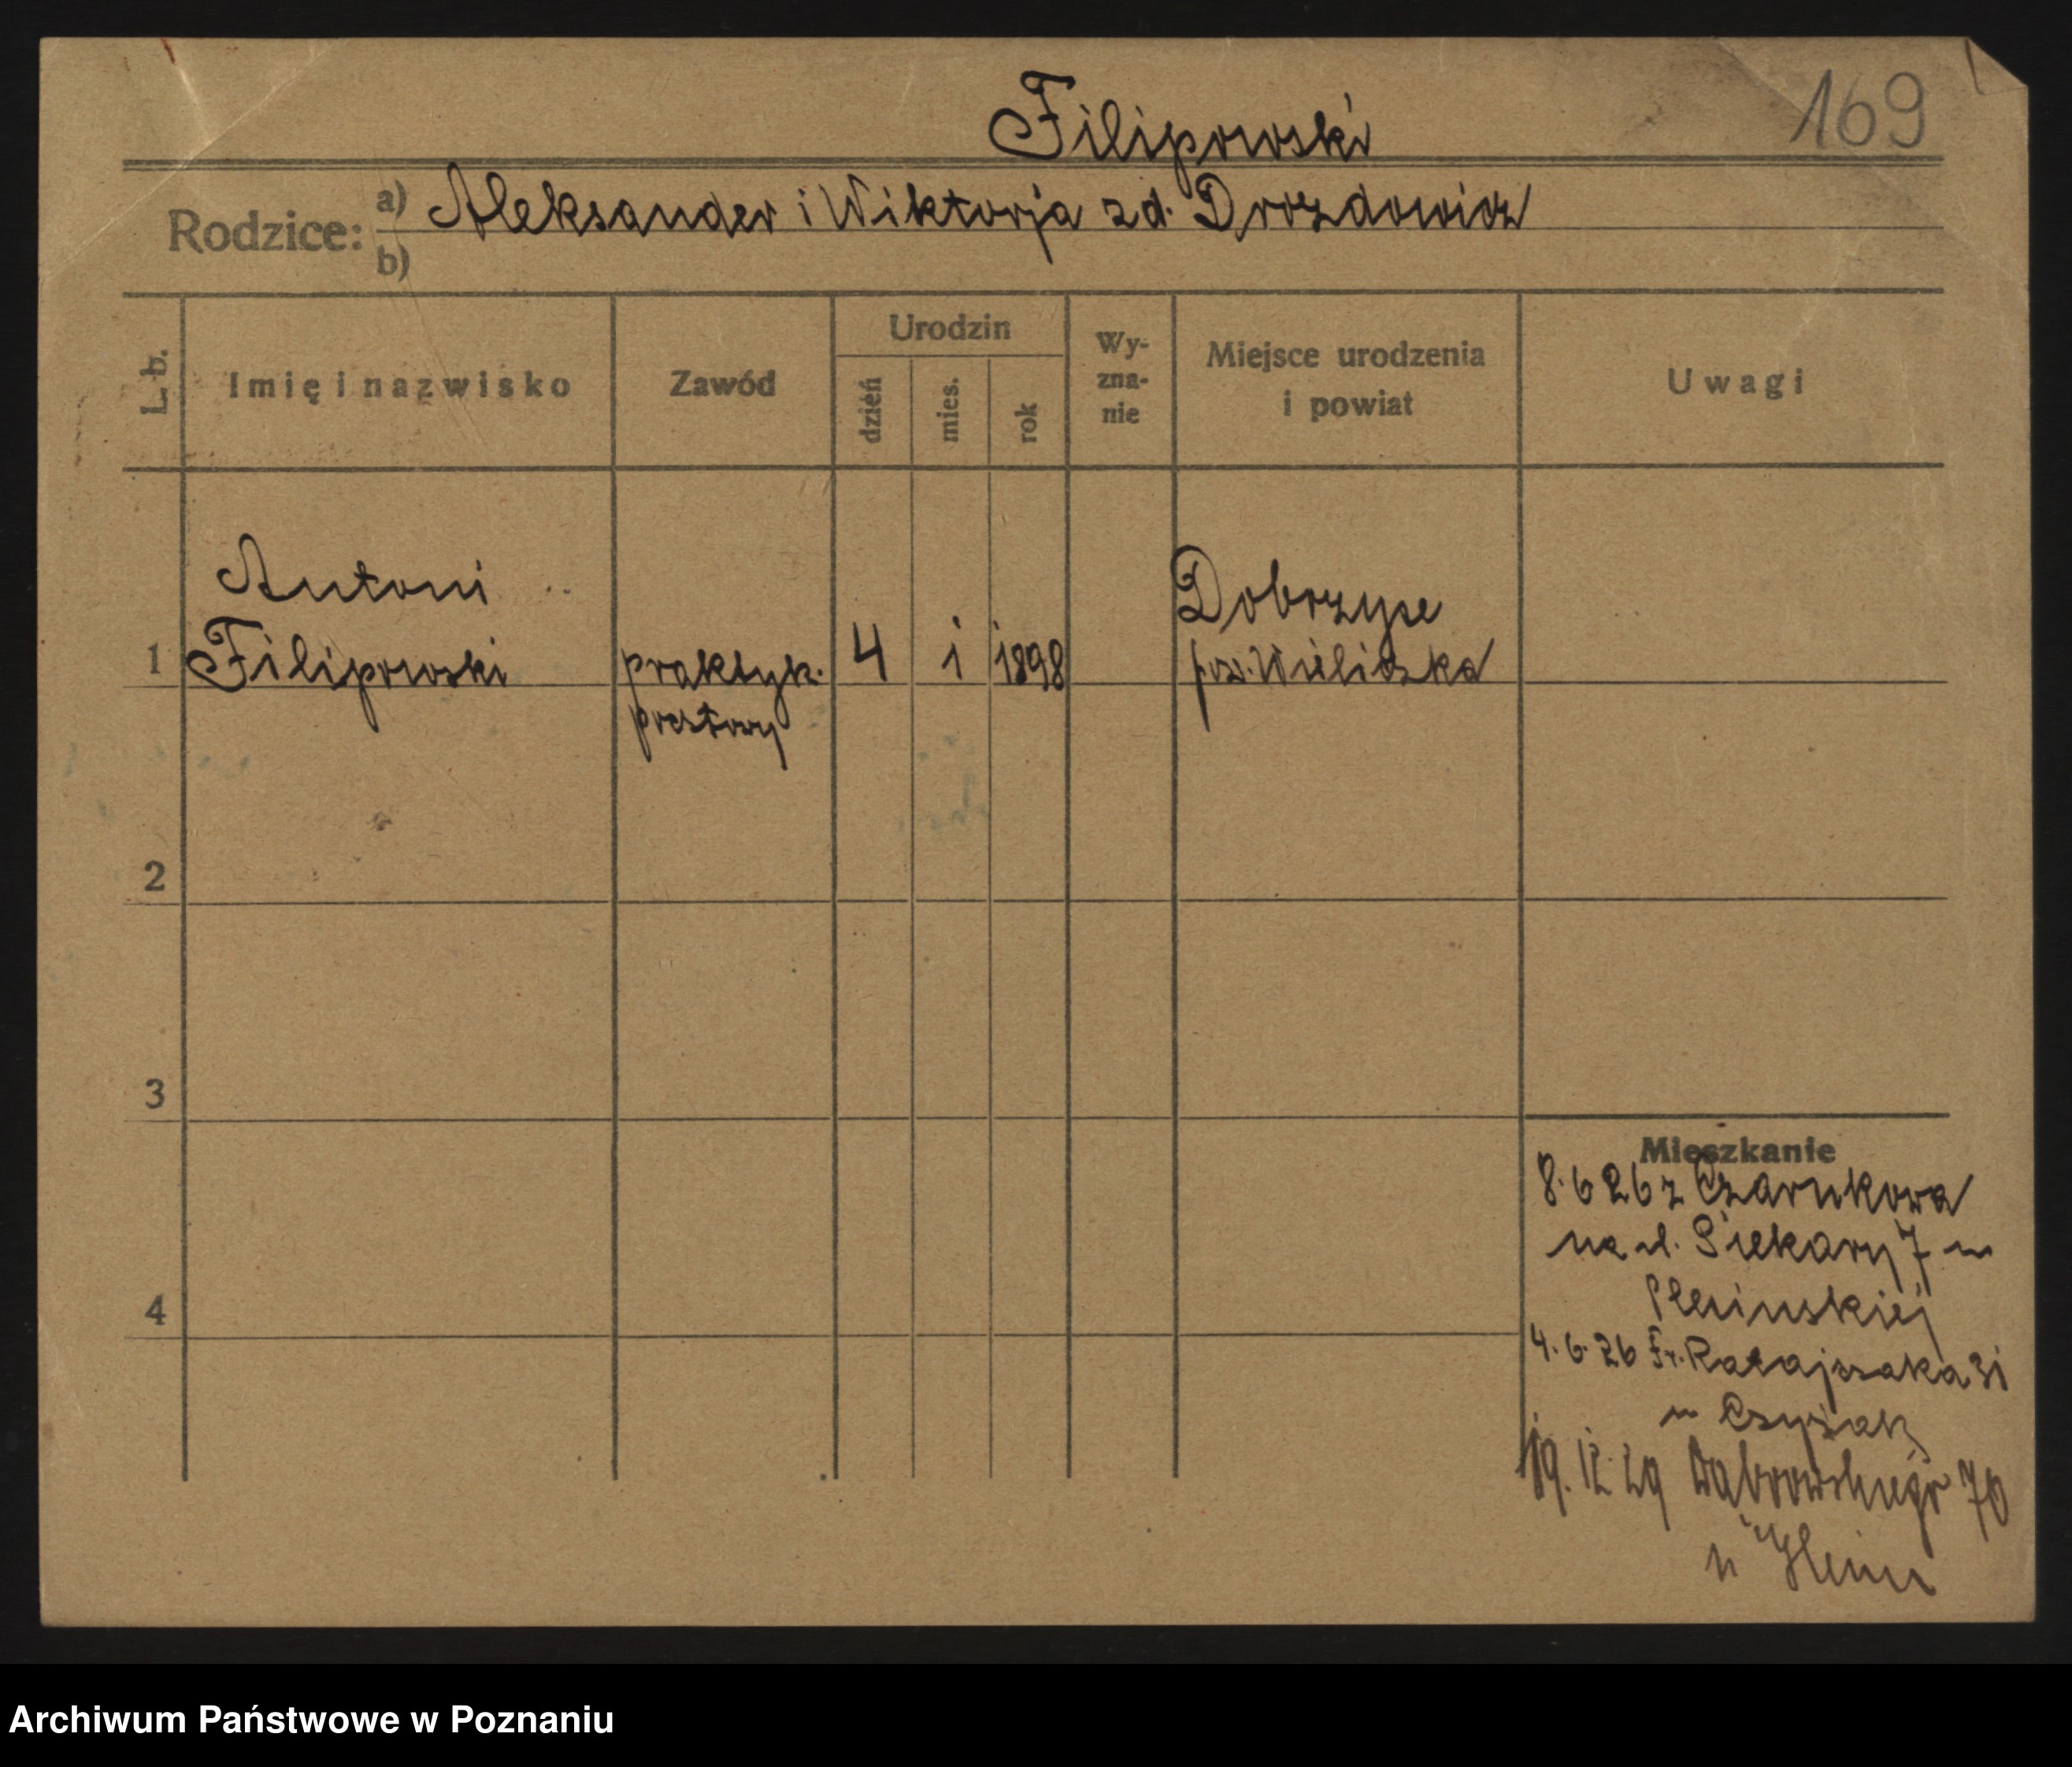 Filipowski
169
Rodzice:
a) Aleksander i Wiktorja zd. Drozdowicz
b)
L. b.
Imię i nazwisko
Zawód
Urodzin
dzień
mies.
rok
Wy-
zna-
nie
Miejsce urodzenia
i powiat
Uwagi
Antoni
Dobrzyce
1 Filipowski praktyk. 4 1 1898 pow. Wieliczka
pocztowy
2
3
Mieszkanie
8. 6 26 z Czarnkowa
na ul. Piekary 7 u
4
4. 6. 26 Fr. Ratajczaka 31
u Czyżak
19. 12 29 Dąbrowskiego 70
u
Archiwum Państwowe w Poznaniu